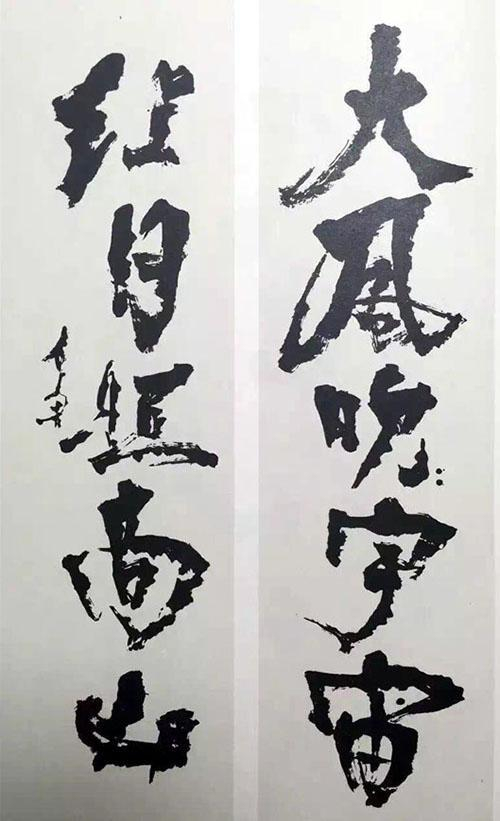 大風吹宇宙
紅日照高山